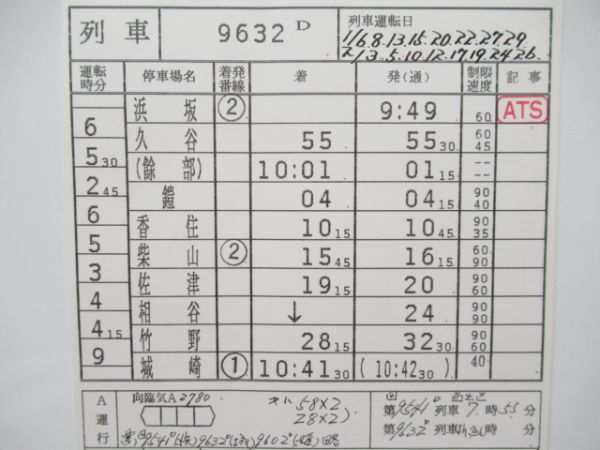 列車 9632D 列車運転日
1/6.8.13.15.20.22.27.29.
2/3.5.10.12.17.19.24.26
運転時分 停車場名 着発番線 着 発(通) 制限速度 記事
浜坂 ② 9:49 60 ATS
6
久谷 55 55 30 60 45
5 30
(餘部) 10:01 01 15 -- --
2 45
鎧 04 04 15 90 40
6
香住 10 15 10 45 90 35
5
柴山 ② 15 45 16 15 60 90
3
佐津 19 15 20 90 60
4
相谷 ↓ 24 90
4 15
竹野 28 15 32 30 90 60
9
城崎 ① 10:41 30 (10:42 30) 40
A運行 向臨気A2780
キハ 58×2
28×2
第9541D列車 7時55分
第9632D列車 時 分
9541D 9632D 9602D